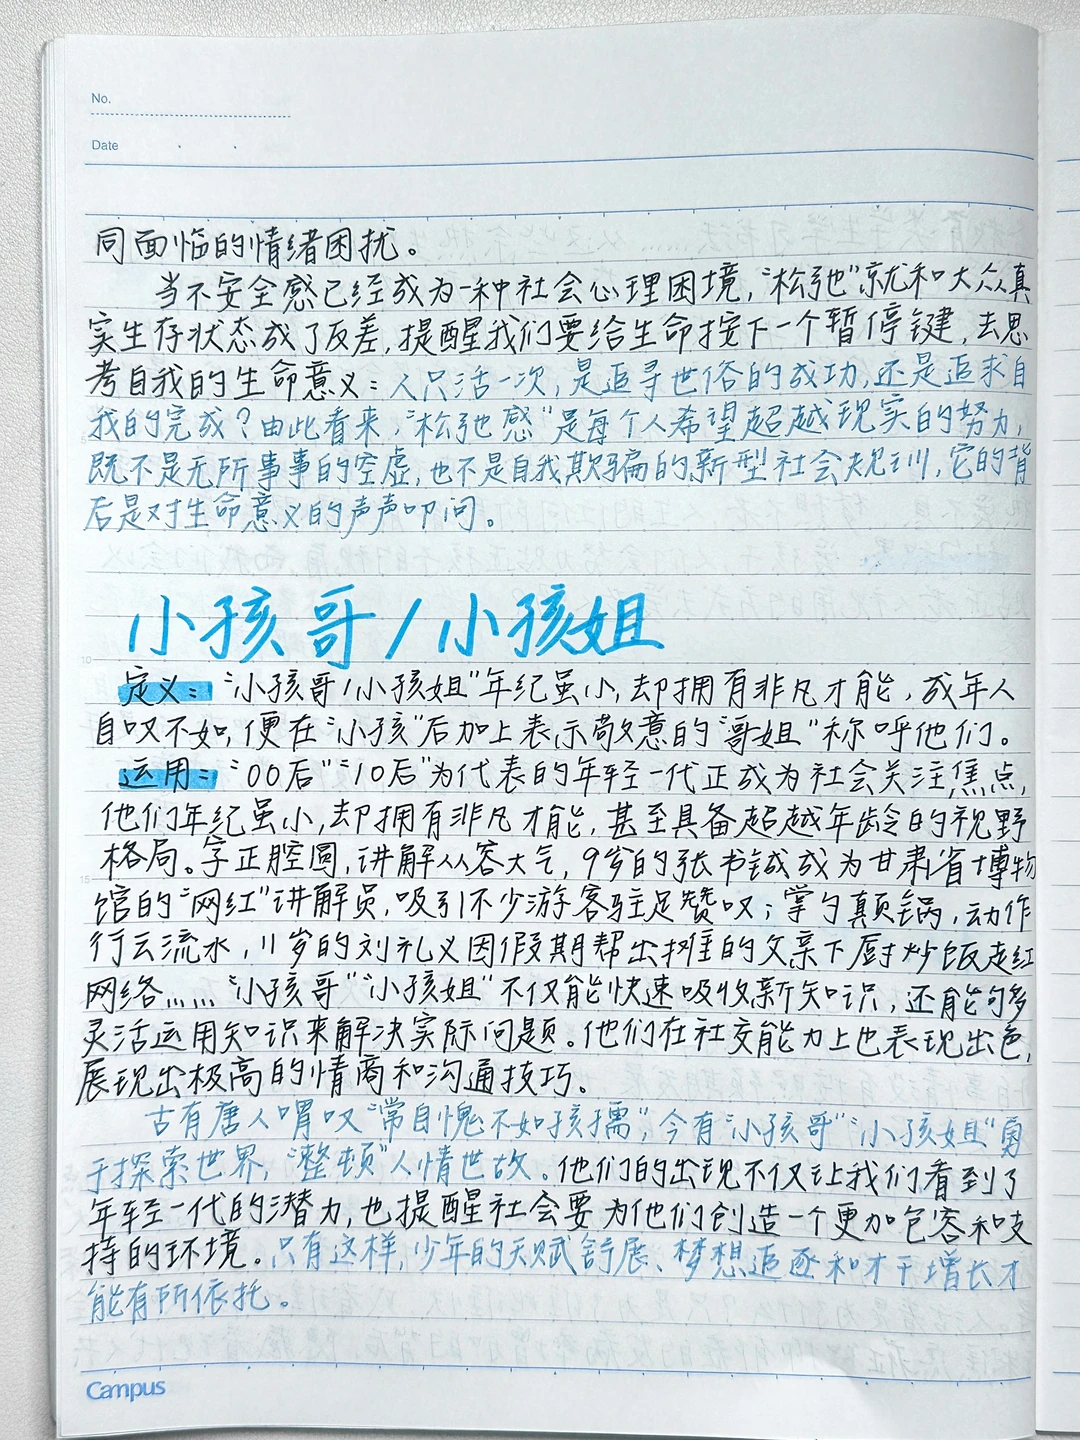 No.
Date
同面临的情绪困扰。
当不安全感已经成为一种社会心理困境，“松弛”就和大众真
实生存状态成了反差，提醒我们要给生命按下一个暂停键，去思
考自我的生命意义：人只活一次，是追寻世俗的成功，还是追求自
我的完成？由此看来，“松弛感”是每个人希望超越现实的努力，
既不是无所事事的空虚，也不是自我欺骗的新型社会规训，它的背
后是对生命意义的声声叩问。
小孩哥/小孩姐
定义：“小孩哥/小孩姐”年纪虽小，却拥有非凡才能，成年人
自叹不如，便在“小孩”后加上表示敬意的“哥姐”称呼他们。
运用：“00后”“10后”为代表的年轻一代正成为社会关注焦点，
他们年纪虽小，却拥有非凡才能，甚至具备超越年龄的视野
格局。字正腔圆，讲解从容大气，9岁的张书铖成为甘肃省博物
馆的“网红”讲解员，吸引不少游客驻足赞叹；掌勺颠锅，动作
行云流水，11岁的刘礼义因假期帮出摊的父亲下厨炒饭走红
网络……“小孩哥”“小孩姐”不仅能快速吸收新知识，还能够
灵活运用知识来解决实际问题。他们在社交能力上也表现出色，
展现出极高的情商和沟通技巧。
古有唐人喟叹“常自愧不如孩孺”，今有“小孩哥”“小孩姐”勇
于探索世界，“整顿”人情世故。他们的出现不仅让我们看到了
年轻一代的潜力，也提醒社会要为他们创造一个更加包容和支
持的环境。只有这样，少年的天赋舒展、梦想追逐和才干增长才
能有所依托。
Campus